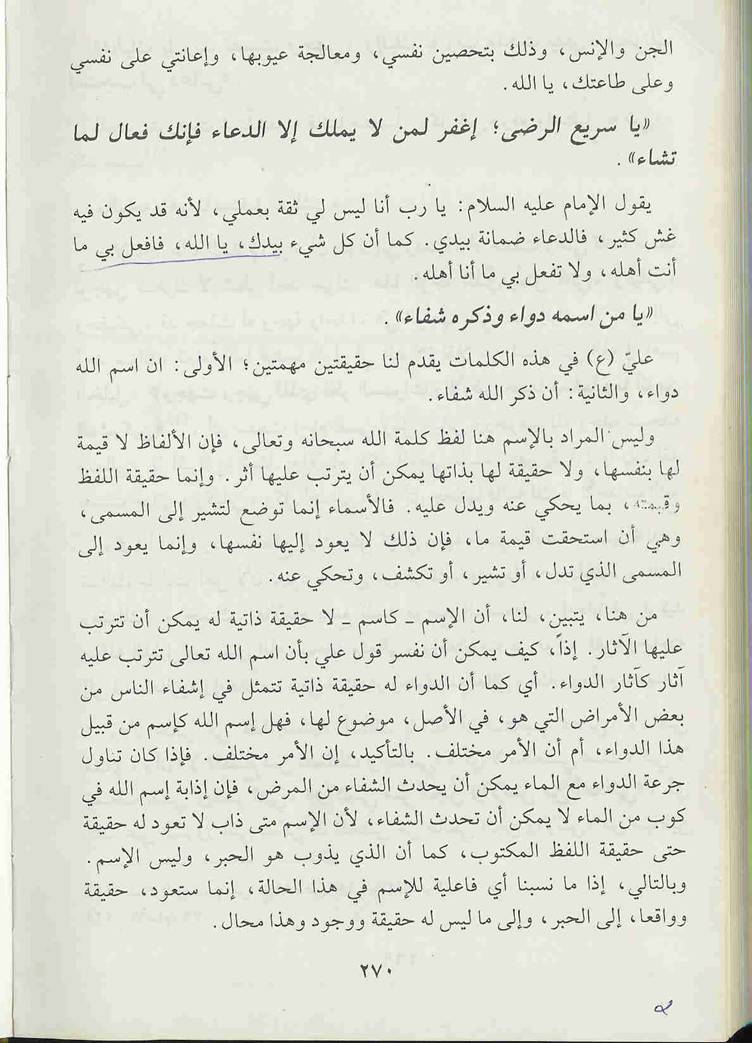 الجن والإنس، وذلك بتحصين نفسي، ومعالجة عيوبها، وإعانتي على نفسي
وعلى طاعتك، يا الله.
«يا سريع الرضى؛ إغفر لمن لا يملك إلا الدعاء فإنك فعال لما
تشاء».
يقول الإمام عليه السلام: يا رب أنا ليس لي ثقة بعملي، لأنه قد يكون فيه
غش كثير، فالدعاء ضمانة بيدي. كما أن كل شيء بيدك، يا الله، فافعل بي ما
أنت أهله، ولا تفعل بي ما أنا أهله.
«يا من اسمه دواء وذكره شفاء».
عليّ (ع) في هذه الكلمات يقدم لنا حقيقتين مهمتين؛ الأولى: ان اسم الله
دواء، والثانية: أن ذكر الله شفاء.
وليس المراد بالإسم هنا لفظ كلمة الله سبحانه وتعالى، فإن الألفاظ لا قيمة
لها بنفسها، ولا حقيقة لها بذاتها يمكن أن يترتب عليها أثر. وإنما حقيقة اللفظ
وقيمته، بما يحكي عنه ويدل عليه. فالأسماء إنما توضع لتشير إلى المسمى،
وهي أن استحقت قيمة ما، فإن ذلك لا يعود إليها نفسها، وإنما يعود إلى
المسمى الذي تدل، أو تشير، أو تكشف، وتحكي عنه.
من هنا، يتبين، لنا، أن الإسم ـ كاسم ـ لا حقيقة ذاتية له يمكن أن تترتب
عليها الآثار. إذاً، كيف يمكن أن نفسر قول علي بأن اسم الله تعالى تترتب عليه
آثار كآثار الدواء. أي كما أن الدواء له حقيقة ذاتية تتمثل في إشفاء الناس من
بعض الأمراض التي هو، في الأصل، موضوع لها، فهل إسم الله كإسم من قبيل
هذا الدواء، أم أن الأمر مختلف. بالتأكيد، إن الأمر مختلف. فإذا كان تناول
جرعة الدواء مع الماء يمكن أن يحدث الشفاء من المرض، فإن إذابة إسم الله في
كوب من الماء لا يمكن أن تحدث الشفاء، لأن الإسم متى ذاب لا تعود له حقيقة
حتى حقيقة اللفظ المكتوب، كما أن الذي يذوب هو الحبر، وليس الإسم.
وبالتالي، إذا ما نسبنا أي فاعلية للإسم في هذا الحالة، إنما ستعود، حقيقة
وواقعا، إلى الحبر، وإلى ما ليس له حقيقة ووجود وهذا محال.
٢٧٠